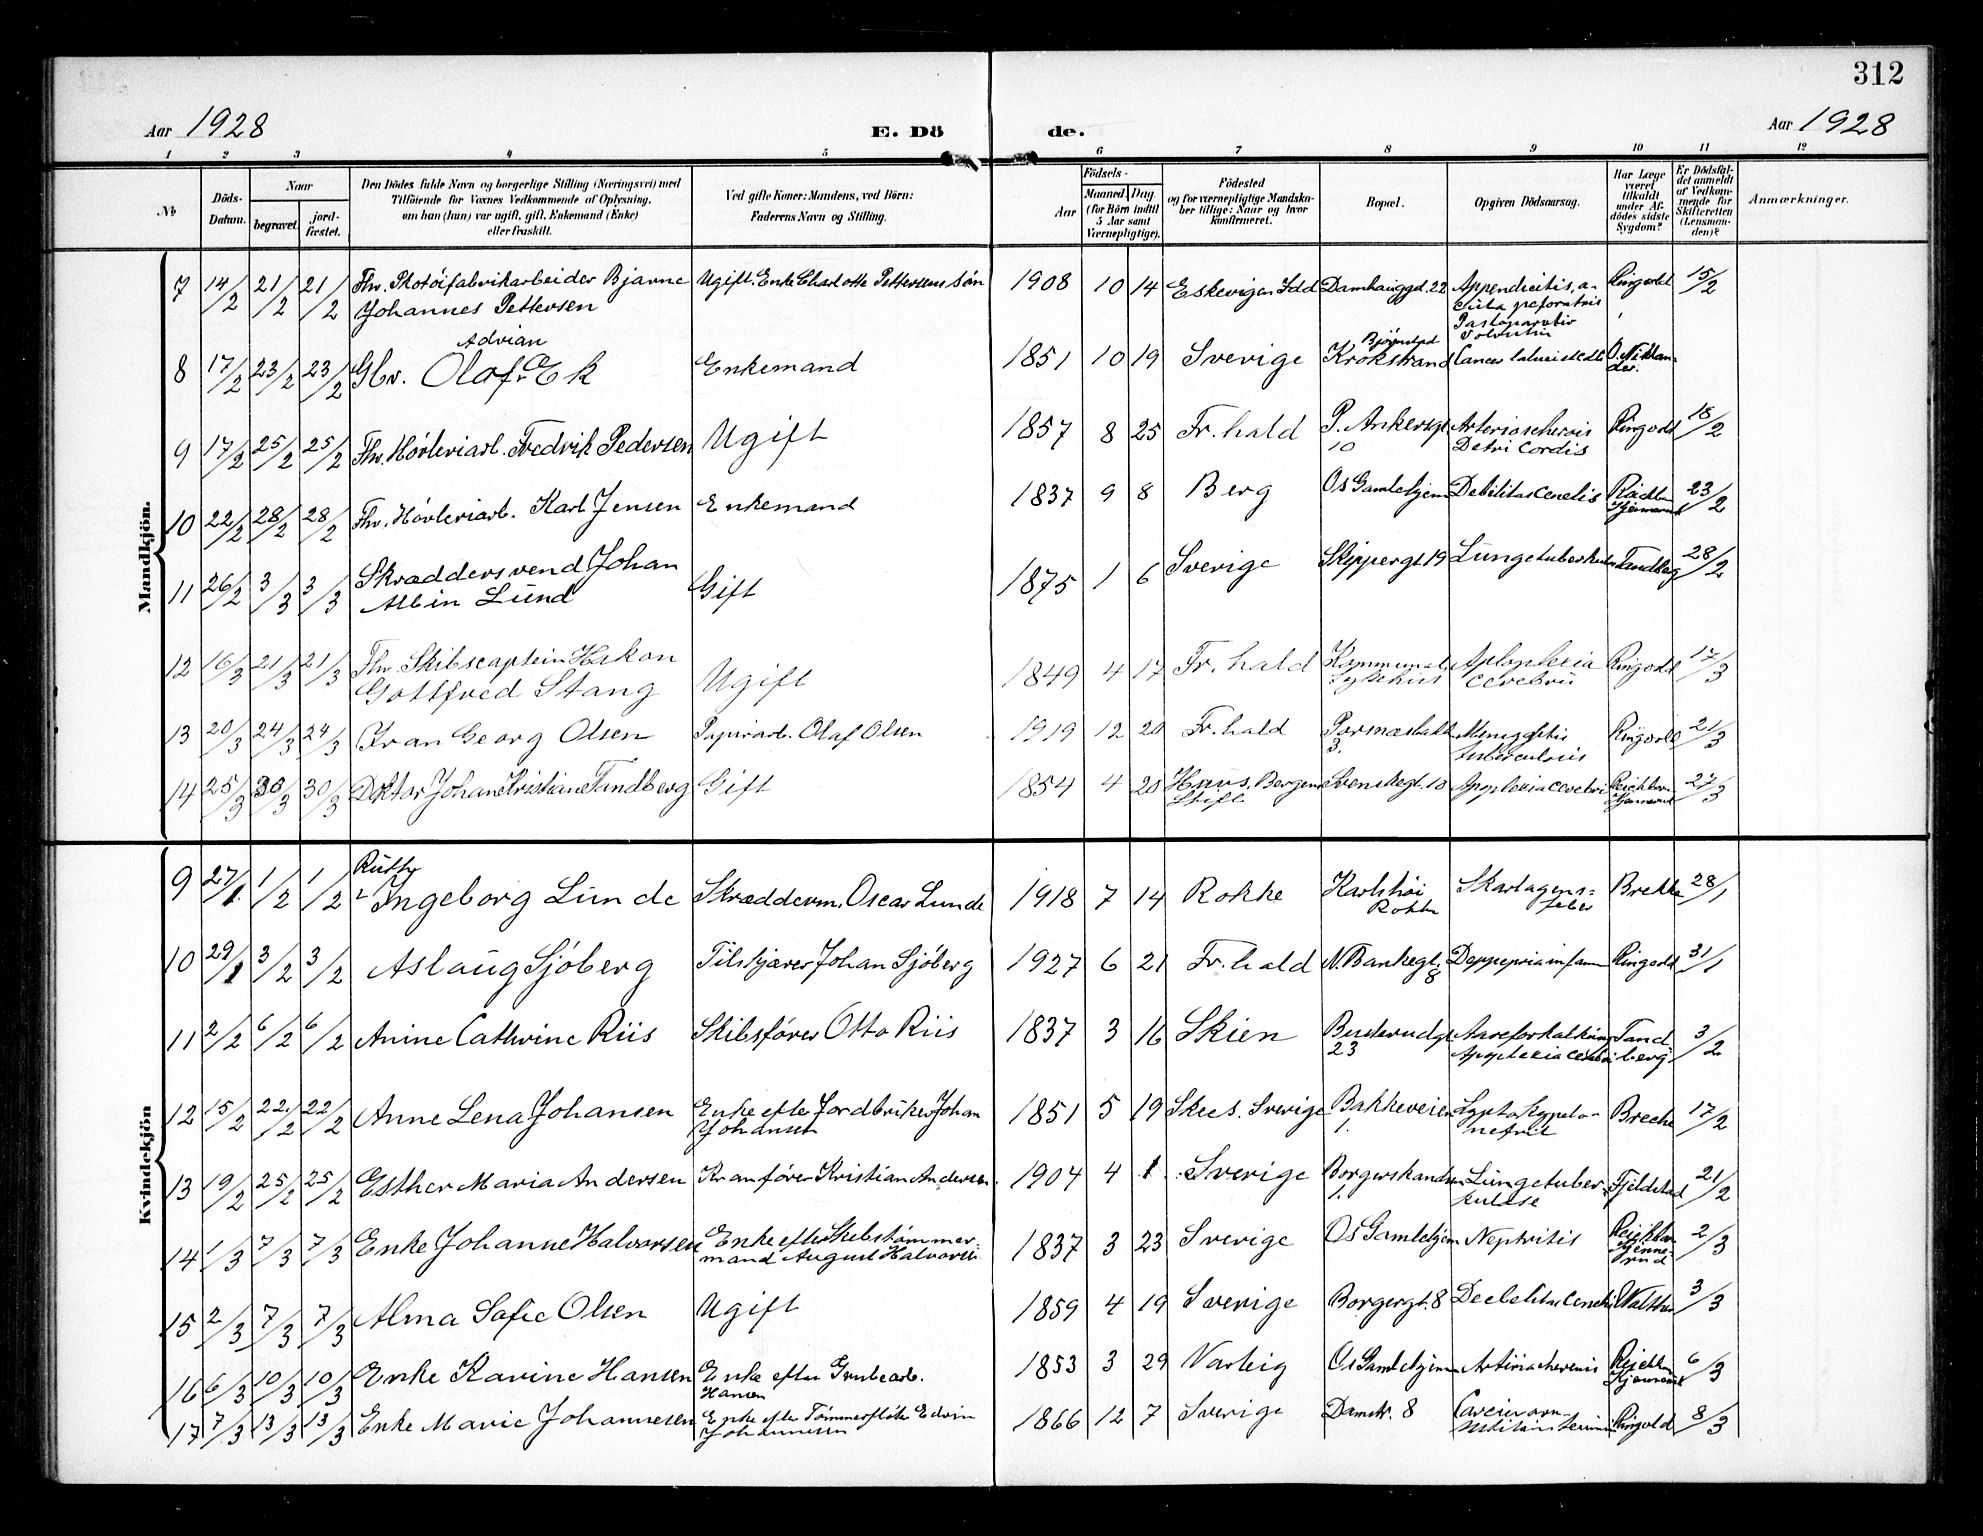 312
Aar 1928
E. Dö de.
Aar 1928
1 2 3 4 5 6 7 8 9 10 11 12
№
Döds-Datum.
Naar
begravet. jord-fæstet.
Den Dödes fulde Navn og borgerlige Stilling (Næringsvei) med Tilföiende for Voxnes Vedkommende af Oplysning, om han (hun) var ugift, gift, Enkemand (Enke) eller fraskilt.
Ved gifte Koner: Mandens, ved Börn: Faderens Navn og Stilling.
Födsels-
Aar
Maaned. Dag. (for Börn indtil 5 Aar samt Værnepligtige).
Födested og for værnepligtige Mandskaber tillige: Naar og hvor konfirmeret.
Bopæl.
Opgiven Dödsaarsag.
Har Læge været tilkaldt under Afdödes sidste Sygdom?
Er Dödsfaldet anmeldt af Vedkommende for Skifteretten (Lensmanden)?
Anmærkninger.
Mandkjön.
7 14/2 21/2 21/2 Fhv. Skotöifabrikarbeider Bjarne Johannes Pettersen Ugift. Enke Charlotte Pettersens sön 1908 10 14 Eskevigen Idd Damhauggd. 22 Appendicitis, acuta Ringvold 15/2
8 17/2 23/2 23/2 Gbr. Olaf Advian Ek Enkemand 1851 10 19 Sverige Björnstad Krokstrand Cancer
9 17/2 25/2 25/2 Fhv. Hövleriarb. Fredrik Pedersen Ugift 1857 8 25 Fr.hald P. Ankersgt 10 Cordis Ringvold 18/2
10 22/2 28/2 28/2 Fhv. Hövleriarb. Karl Jensen Enkemand 1837 9 8 Berg Os Gamlehjem Debilitas Cenelis 23/2
11 26/2 3/3 3/3 Skræddersvend Johan Albin Lund Gift 1875 1 6 Sverige Skippergt 19 Lungetuberkulose Tandberg 28/2
12 16/3 21/3 21/3 Fhv. Skibscaptein Hakon Gottfred Stang Ugift 1849 4 17 Fr.hald Kommunal. Sykehus Aploplexia cerebrii Ringvold 17/3
13 20/3 24/3 24/3 Ivan Georg Olsen Papirarb. Olaf Olsen 1919 12 20 Fr.hald 3. tuberculosis Ringvold 21/3
14 25/3 30/3 30/3 Doktor Johan Kristian Tandberg Gift 1854 4 20 Haus, Bergens Stift Svenskegt. 10 Apoplexia cerebri 27/3
Kvindekjön
9 27/1 1/2 1/2 Ruth Ingeborg Lunde Skrædderm. Oscar Lunde 1918 7 14 Rokke Karlshöi Rokke Skarlagensfeber Brekke 28/1
10 29/1 3/2 3/2 Aslaug Sjöberg Filskjærer Johan Sjöberg 1927 6 21 Fr.hald N. Bankegt. 8 Ringvold 31/1
11 2/2 6/2 6/2 Anine Cathrine Riis Skibsförer Otto Riis 1837 3 16 Skien 23 Aareforkalkning Apoplexia cerebri Tandberg 3/2
12 15/2 22/2 22/2 Anne Lena Johansen Enke efter Jordbruker Johan Johansen 1851 5 19 Skee s. Sverige Bakkeveien 1. 17/2
13 19/2 25/2 25/2 Esther Maria Andersen Kranförer Kristian Andersen 1904 4 1 Sverige 1. Lungetuberkulose Fjeldstad 21/2
14 1/3 7/3 7/3 Enke Johanne Halvorsen Enke efter Skibstömmermand August Halvorsen 1837 3 23 Sverige Os Gamlehjem Neptritis 2/3
15 2/3 7/3 7/3 Alma Sofie Olsen Ugift 1859 4 19 Sverige Borgergt. 8 3/3
16 6/3 10/3 10/3 Enke Karine Hansen Enke efter Grubearb. Hansen 1853 3 29 Varteig Os Gamlehjem 6/3
17 7/3 13/3 13/3 Enke Marie Johannesen Enke efter Tömmerflöter Edvin Johannesen 1866 12 7 Sverige Damstr. 8 Ringvold 8/3